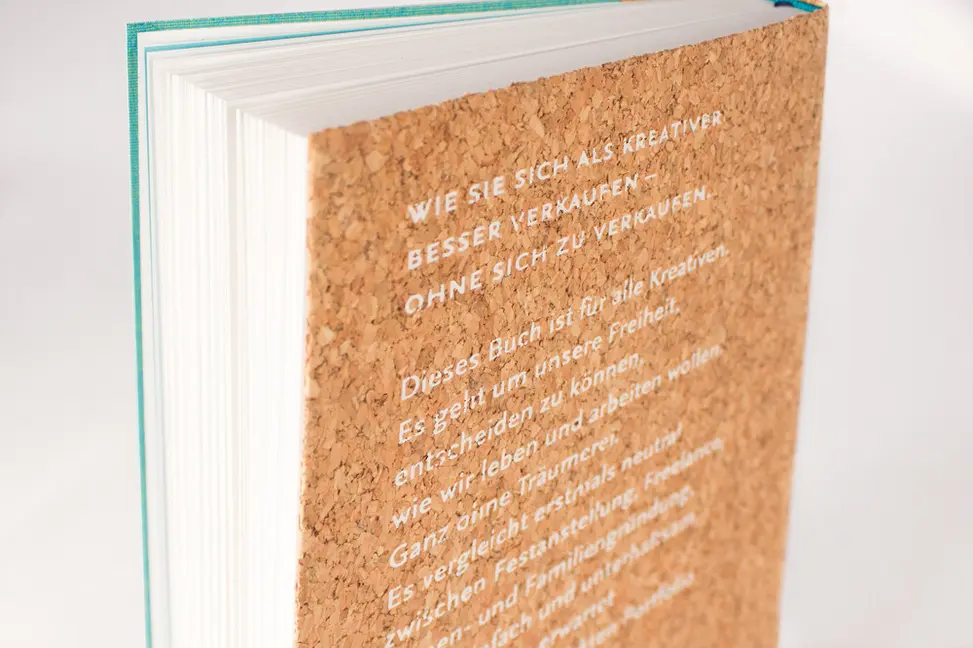 WIE SIE SICH ALS KREATIVER
BESSER VERKAUFEN –
OHNE SICH ZU VERKAUFEN.
Dieses Buch ist für alle Kreativen.
Es geht um unsere Freiheit,
entscheiden zu können,
wie wir leben und arbeiten wollen.
Ganz ohne Träumerei.
Es vergleicht erstmals neutral
zwischen Festanstellung, Freelance,
und Familiengründung.
und unterhaltsam,
erwartet
Portfolio